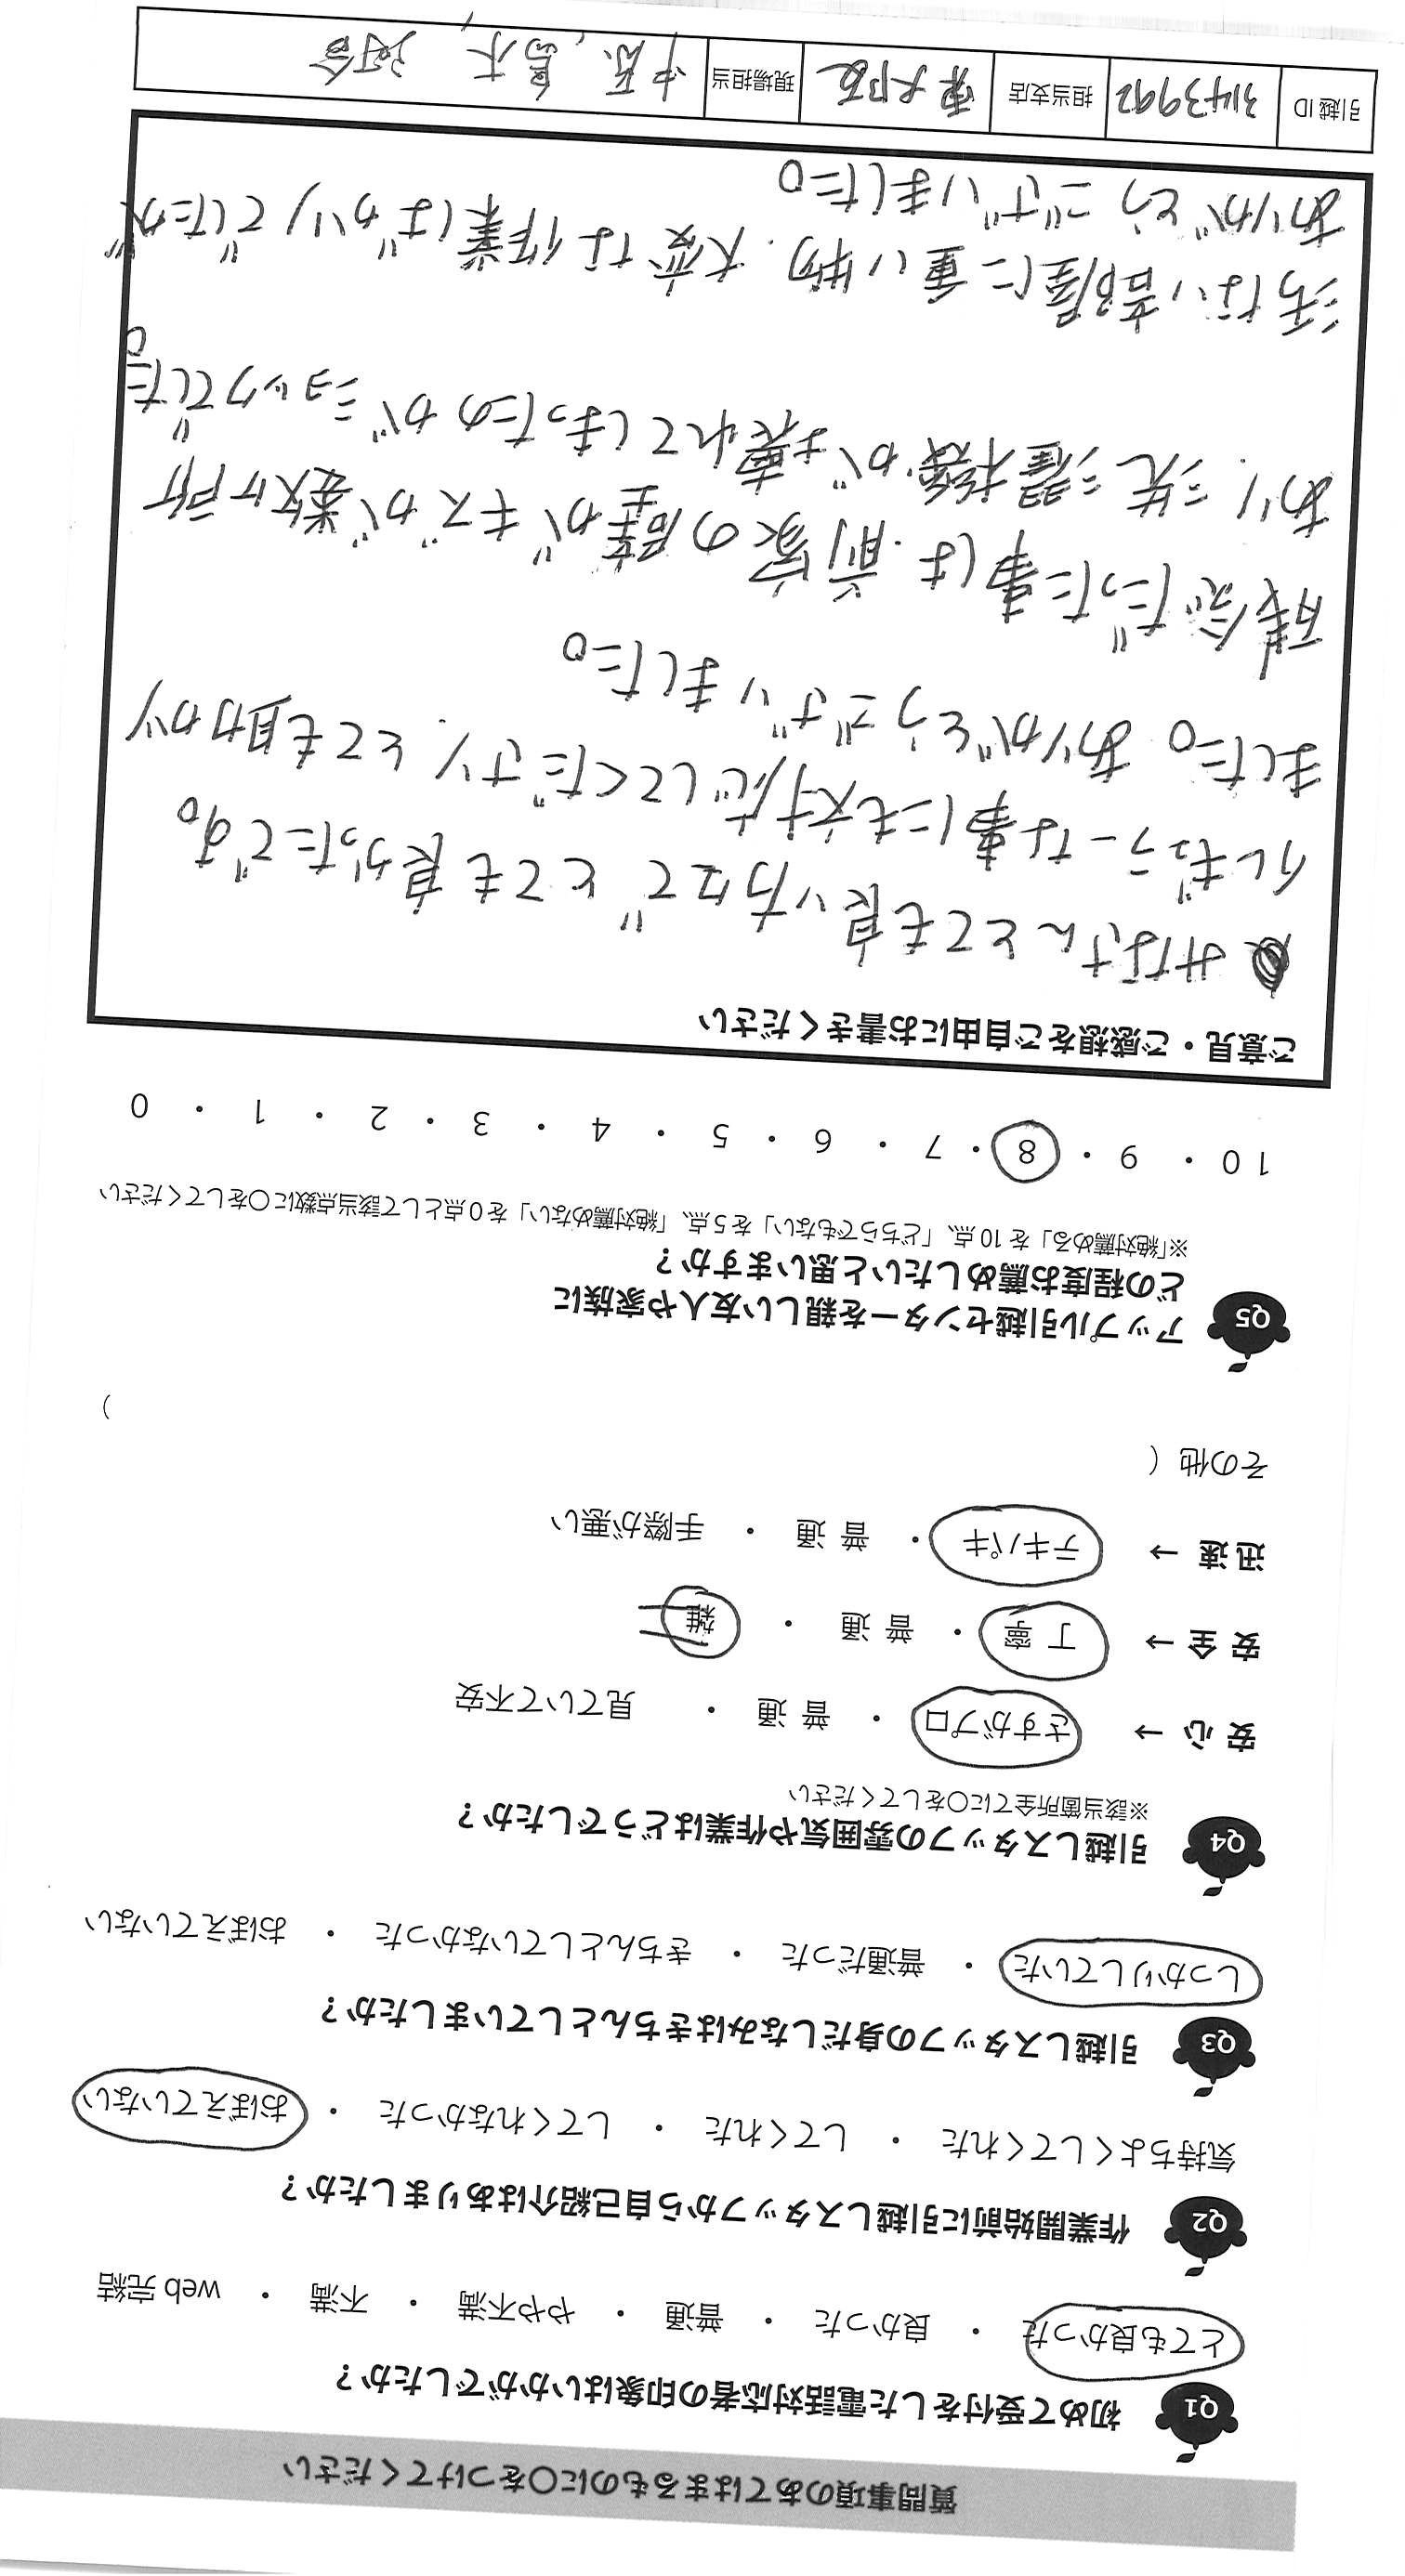 質問事項のあてはまるものに○をつけてください
Q1 初めて受付をした電話対応者の印象はいかがでしたか?
とても良かった ・ 良かった ・ 普通 ・ やや不満 ・ 不満 ・ web 完結
Q2 作業開始前に引越しスタッフから自己紹介はありましたか?
気持ちよくしてくれた ・ してくれた ・ してくれなかった ・ おぼえていない
Q3 引越しスタッフの身だしなみはきちんとしていましたか?
しっかりしていた ・ 普通だった ・ きちんとしていなかった ・ おぼえていない
Q4 引越しスタッフの雰囲気や作業はどうでしたか?
※該当箇所全てに○をしてください
安心 → さすがプロ ・ 普通 ・ 見ていて不安
安全 → 丁寧 ・ 普通 ・ 雑
迅速 → テキパキ ・ 普通 ・ 手際が悪い
その他 (
)
Q5 アップル引越センターを親しい友人や家族に
どの程度お薦めしたいと思いますか?
※「絶対薦める」を10点、「どちらでもない」を5点、「絶対薦めない」を0点として該当点数に○をしてください
10 ・ 9 ・ 8 ・ 7 ・ 6 ・ 5 ・ 4 ・ 3 ・ 2 ・ 1 ・ 0
ご意見・ご感想をご自由にお書きください
みなさんとても良い方々で とても良かったです。
イレギュラーな事にも対応してくださり、とても助かり
ました。ありがとうございました。
残念だった事は、前家の壁がキズが数ヶ所
あり、洗濯機が壊れてしまったのがショックでした。
部屋に重い物、大変な作業ばかりでしたが
ありがとうございました。
引越ID 3143992 担当支店 東大阪 現場担当 中原、島木、河合